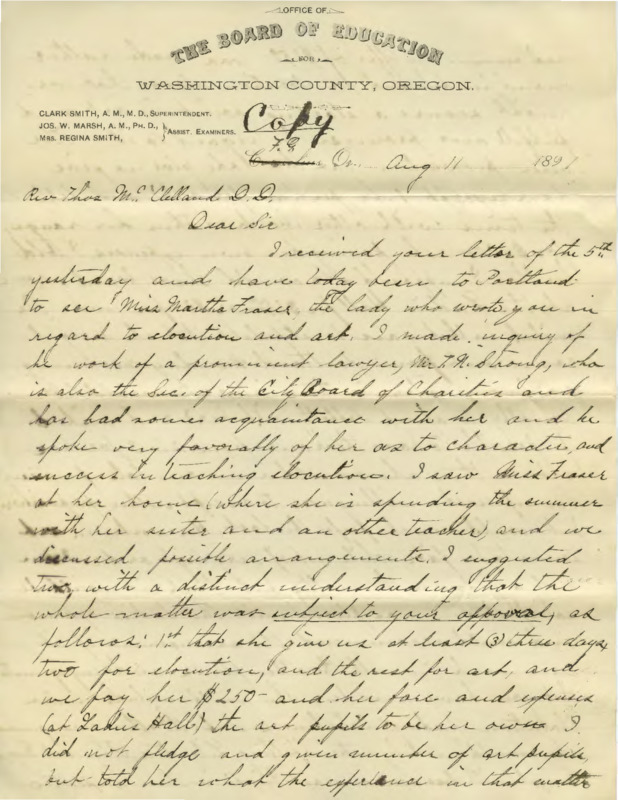 OFFICE OF
THE BOARD OF EDUCATION
FOR
WASHINGTON COUNTY, OREGON.
CLARK SMITH, A. M., M. D., SUPERINTENDENT.
JOS. W. MARSH, A. M., PH. D.,
MRS. REGINA SMITH,
ASSIST. EXAMINERS.
Copy
F. G.
Cornelius Or. Aug 11 1891
Rev Thos McClelland D. D.
Dear Sir
I received your letter of the 5th
yesterday and have today been to Portland
to see Miss Martha Fraser, the lady who wrote you in
regard to elocution and art. I made inquiry of
he work of a prominent lawyer, Mr F. N. Strong, who
is also the Sec. of the City Board of Charities and
has had some acquaintance with her and he
spoke very favorably of her as to character, and
success in teaching elocution. I saw Miss Fraser
at her home (where she is spending the summer
with her sister and an other teacher) and we
discussed possible arrangements. I suggested
two, with a distinct understanding that the
whole matter was subject to your approval, as
follows: 1st that she give us at least 3 three days
two for elocution, and the rest for art, and
we pay her $250- and her fare and expenses
(at Ladies Hall) the art pupils to be her own I
did not pledge and given number of art pupils,
but told her what the experience in that matter